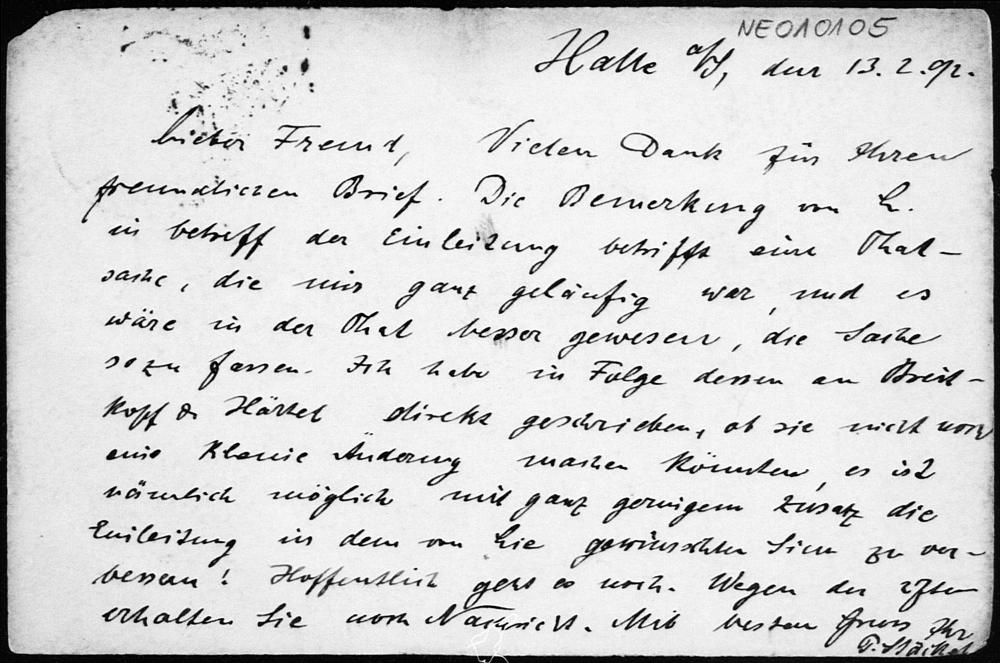 NE010105
Halle a/S, den 13.2.92.
Lieber Freund, Vielen Dank für Ihren
freundlichen Brief. Die Bemerkung von L.
in betreff der Einleitung betrifft eine That-
sache, die mir ganz geläufig war, und es
wäre in der That besser gewesen, die Sache
so zu fassen. Ich habe in Folge dessen an Breit-
kopf & Härtel direkt geschrieben, ob sie nicht noch
eine kleine Änderung machen könnten, es ist
nämlich möglich mit ganz geringem Zusatz die
Einleitung in dem von Lie gewünschten Sinn zu ver-
bessern! Hoffentlich geht es noch. Wegen der
erhalten Sie noch Nachricht. Mit bestem Gruss Ihr
P. Stäckel